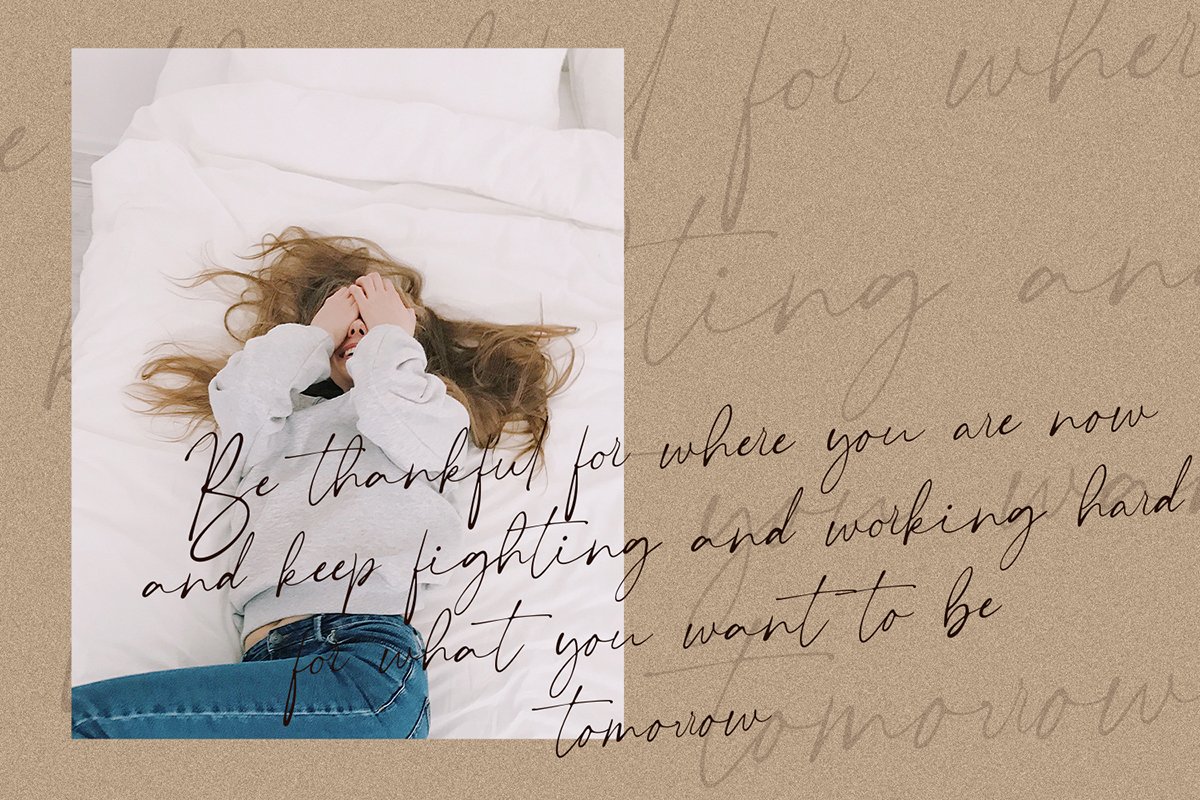 Be thankful for where you are now
and keep fighting and working hard
for what you want to be
tomorrow
for wher
e
ting and
you wa
tomorrow